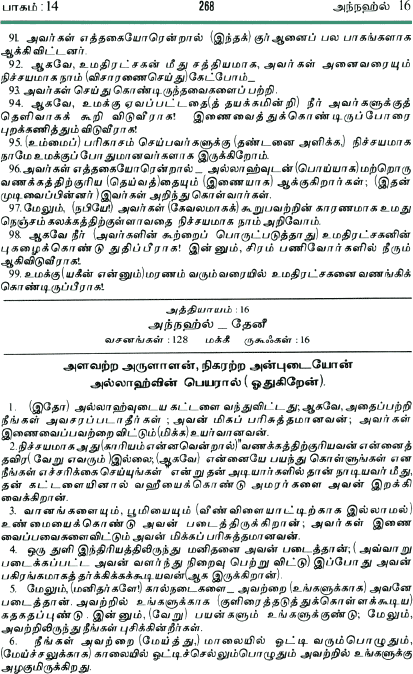 பாகம் : 14 268 அந்நஹ்ல் 16
91. அவர்கள் எத்தகையோரென்றால் (இந்தக்) குர்ஆனைப் பல பாகங்களாக
ஆக்கி விட்டனர்.
92. ஆகவே, உமதிரட்சகன் மீது சத்தியமாக, அவர்கள் அனைவரையும்
நிச்சயமாக நாம் (விசாரணைசெய்து) கேட்போம் _
93. அவர்கள் செய்து கொண்டிருந்தவைகளைப் பற்றி.
94. ஆகவே, உமக்கு ஏவப்பட்டதை(த் தயக்கமின்றி) நீர் அவர்களுக்குத்
தெளிவாகக் கூறி விடுவீராக! இணைவைத்துக் கொண்டிருப்போரை
புறக்கணித்தும் விடுவீராக!
95. (உம்மைப்) பரிகாசம் செய்பவர்களுக்கு (தண்டனை அளிக்க,) நிச்சயமாக
நாமே உமக்குப் போதுமானவர்களாக இருக்கிறோம்.
96. அவர்கள் எத்தகையோரென்றால் _ அல்லாஹ்வுடன் (பொய்யாக) மற்றொரு
வணக்கத்திற்குரிய (தெய்வத்)தையும் (இணையாக) ஆக்குகிறார்கள்; (இதன்
முடிவைப் பின்னர்) இவர்கள் அறிந்து கொள்வார்கள்.
97. மேலும், (நபியே!) அவர்கள் (கேவலமாகக்) கூறுபவற்றின் காரணமாக உமது
நெஞ்சம் கலக்கத்திற்குள்ளாவதை நிச்சயமாக நாம் அறிவோம்.
98. ஆகவே நீர் (அவர்களின் கூற்றைப் பொருட்படுத்தாது) உமதிரட்சகனின்
புகழைக்கொண்டு துதிப்பீராக! இன்னும், சிரம் பணிவோர்களில் நீரும்
ஆகிவிடுவீராக!.
99. உமக்கு (யகீன் என்னும்) மரணம் வரும்வரையில் உமதிரட்சகனை வணங்கிக்
கொண்டிருப்பீராக!
அத்தியாயம் : 16
அந்நஹ்ல் _ தேனீ
வசனங்கள் : 128 மக்கீ ருகூஃகள் : 16
அளவற்ற அருளாளன், நிகரற்ற அன்புடையோன்
அல்லாஹ்வின் பெயரால் ( ஓதுகிறேன்).
1. (இதோ) அல்லாஹ்வுடைய கட்டளை வந்துவிட்டது; ஆகவே, அதைப்பற்றி
நீங்கள் அவசரப்படாதீர்கள் ; அவன் மிகப் பரிசுத்தமானவன்; அவர்கள்
இணைவைப்பவற்றை விட்டும் (மிக்க) உயர்வானவன்.
2. நிச்சயமாக அது (காரியம் என்னவென்றால்) "வணக்கத்திற்குரியவன் என்னைத்
தவிர( வேறு எவரும் )இல்லை; (ஆகவே) என்னையே பயந்து கொள்ளுங்கள் என
நீங்கள் எச்சரிக்கை செய்யுங்கள்" என்று தன் அடியார்களில் தான் நாடியவர் மீது,
தன் கட்டளையினால் வஹீயைக்கொண்டு அமரர்களை அவன் இறக்கி
வைக்கிறான்.
3. வானங்களையும், பூமியையும் (வீண் விளையாட்டிற்காக இல்லாமல்)
உண்மையைக்கொண்டு அவன் படைத்திருக்கிறான்; அவர்கள் இணை
வைப்பவைகளைவிட்டும் அவன் மிக்கப் பரிசுத்தமானவன்.
4. ஒரு துளி இந்திரியத்திலிருந்து மனிதனை அவன் படைத்தான்; ( அவ்வாறு
படைக்கப்பட்ட அவன் வளர்ந்து நிறைவு பெற்று விட்டு) இப்போது அவன்
பகிரங்கமாகத் தர்க்கிக்கக்கூடியவன் (ஆக இருக்கிறான்).
5. மேலும், (மனிதர்களே!) கால்நடைகளை _ அவற்றை (உங்களுக்காக) அவனே
படைத்தான். அவற்றில் உங்களுக்காக (குளிரைத்தடுத்துக்கொள்ளக்கூடிய)
கதகதப்புண்டு . இன்னும், (வேறு) பயன்களும் உங்களுக்குண்டு; மேலும்,
அவற்றிலிருந்து நீங்கள் புசிக்கின்றீர்கள்.
6. நீங்கள் அவற்றை (மேய்த்து,) மாலையில் ஓட்டி வரும்பொழுதும்,
(மேய்ச்சலுக்காக) காலையில் ஓட்டிச்செல்லும்பொழுதும் அவற்றில் உங்களுக்கு
அழகுமிருக்கிறது.